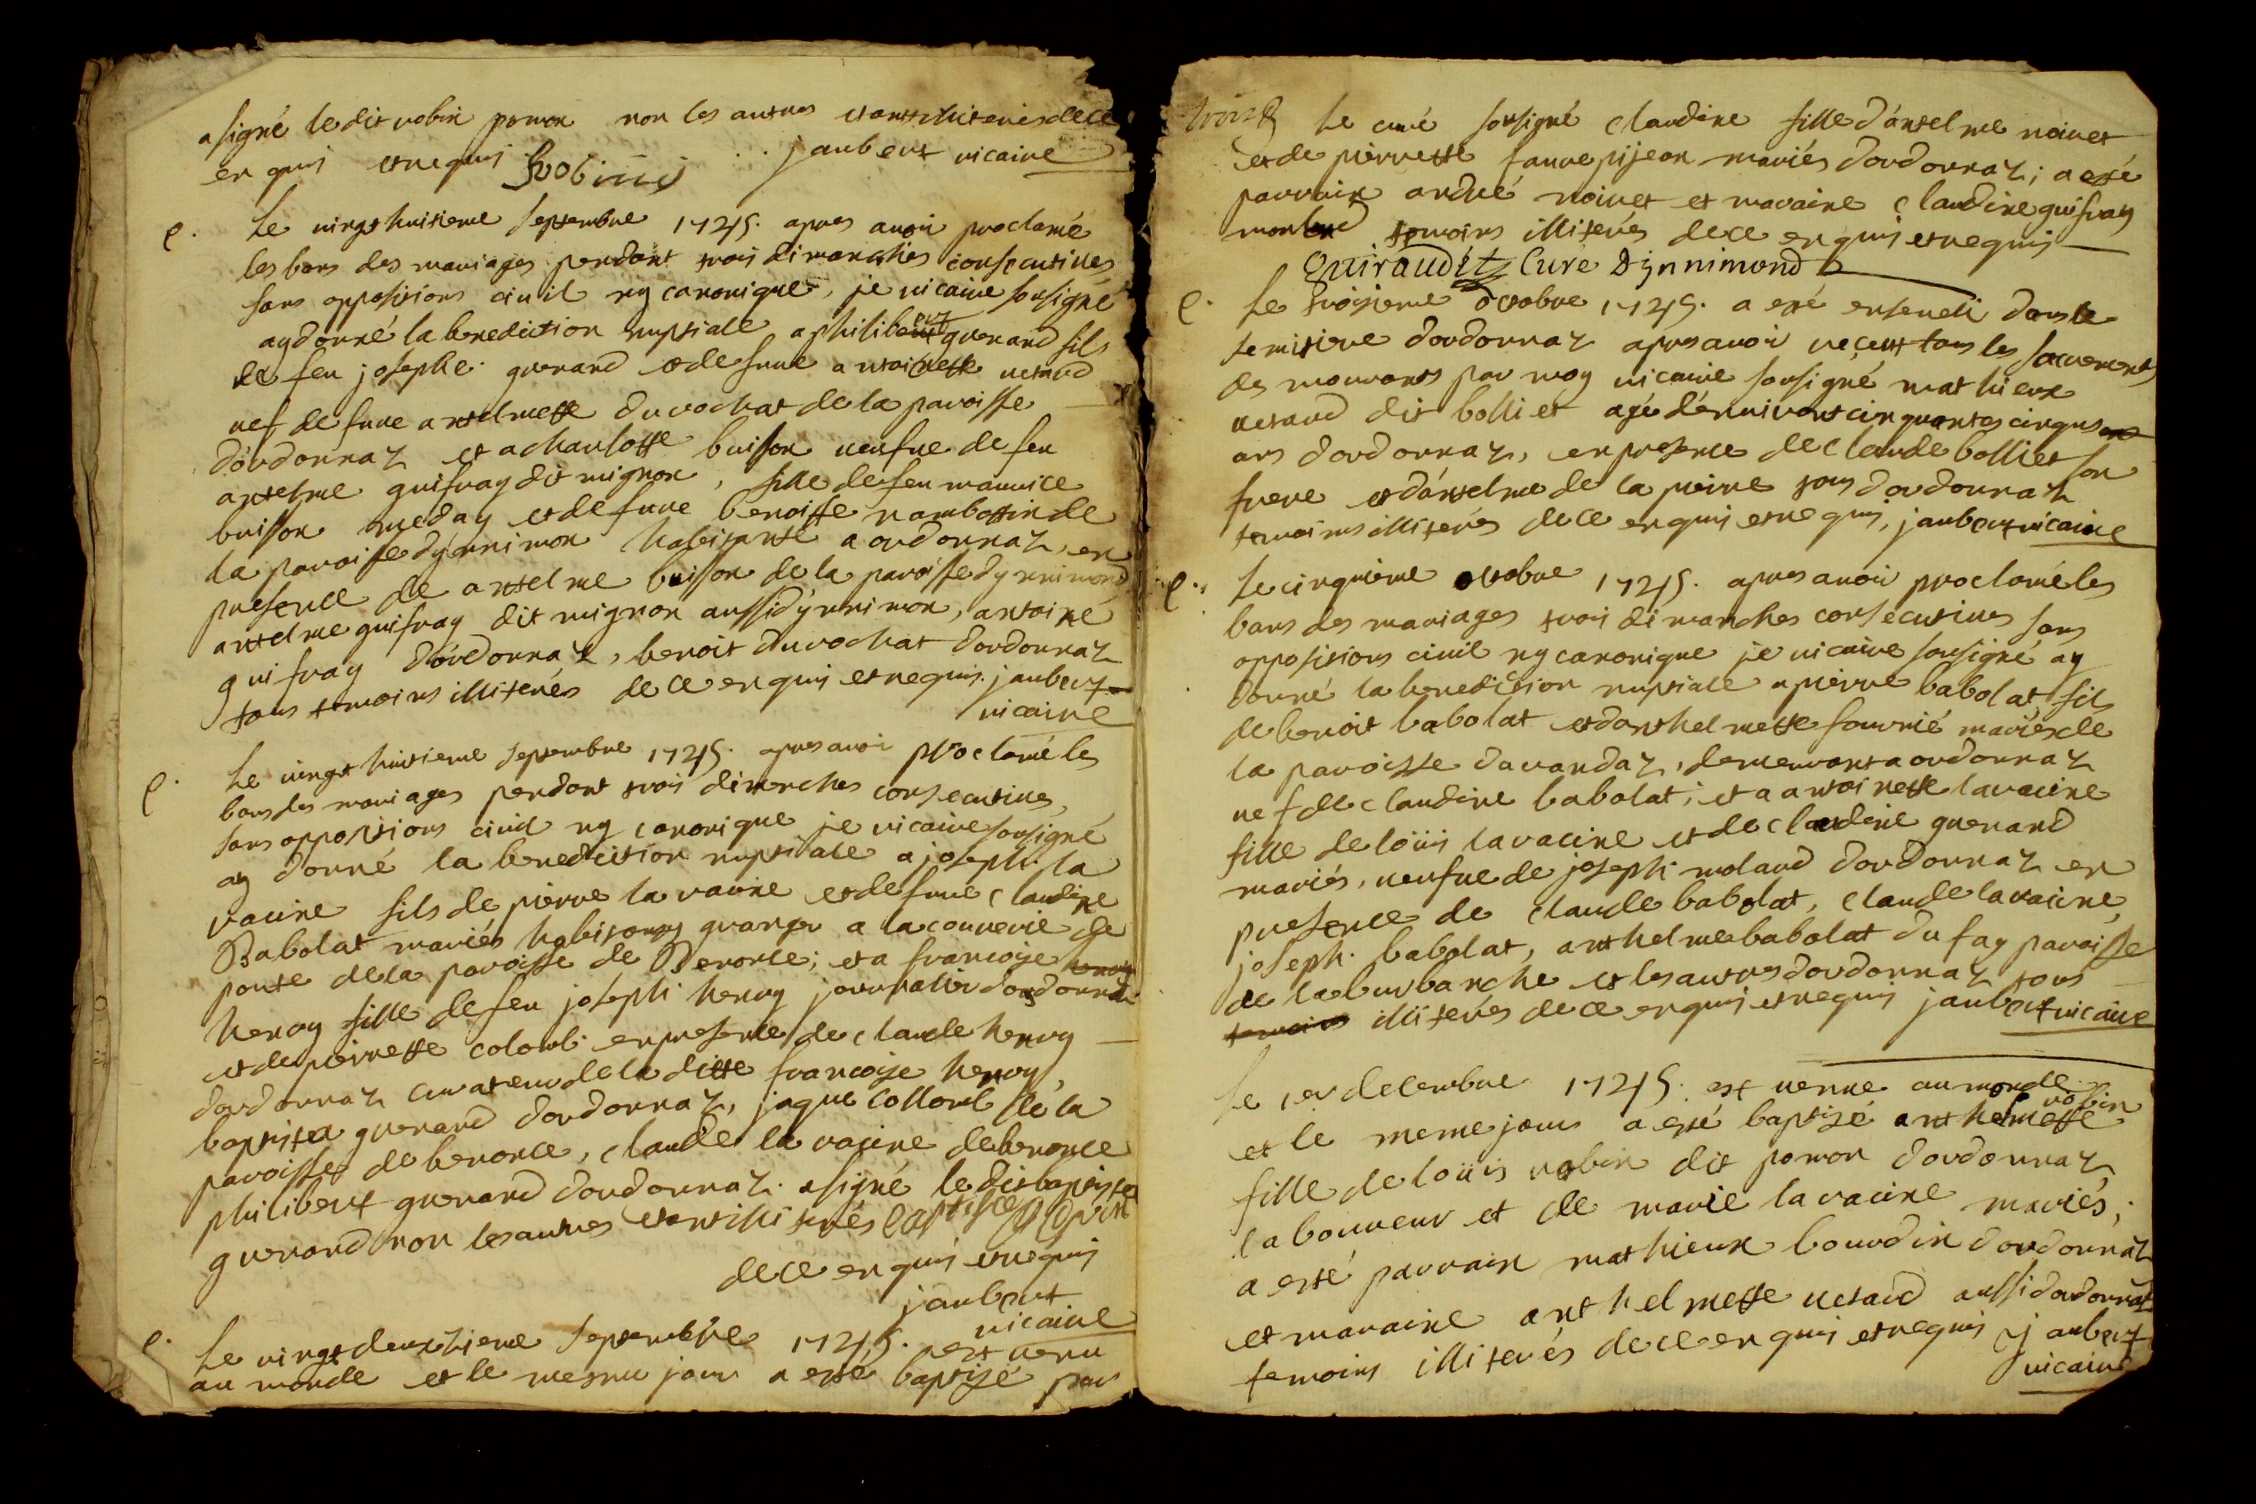 a signé ledit robin pomon non les autres etants illiterés de ce
enquis et requis Robin jaubert vicaire
e. Le vingt huitieme septembre 1725. apres avoir proclamé
les bans des mariages pendant trois dimanches consecutives
sans oppositions civil ny canonique, je vicaire sousigné
ay donné la benediction nuptiale a philibert guerard fils
de feu josephe guerard et de feue antoinette vetard
nef de feue antelmette durochat de la paroisse
d'ordonnaz et a charlotte buisson veufve de feu
antelme guifray dit mignon, fille de feu maurice
buisson meday et de feue benoitte rambottin de
la paroisse dýnnimon habitante a ordonnaz, en
presence de antelme buisson de la paroisse dýnnimond
antelme guifray dit mignon aussi dýnnimon, antoine
guifray d'ordonnaz, benoit durochat dordonnaz
tous temoins illiterés de ce enquis et requis. jaubert
vicaire
e. Le vingt huitieme septembre 1725. apres avoir proclamé les
bans des mariages pendant trois dimenches consecutives,
sans oppositions civil ny canonique je vicaire sousigné
ay donné la benedicition nuptiale a joseph la
racine fils de pierre la racine et de feue claudine
Babolat mariés habitants granger a la couverie de
porte de la paroisse de Benonce; et a francoise
henry fille de feu joseph henry journalier dordonnaz
et de pierrette colomb en presence de claude henry
dordonnaz curateur de la ditte francoise henry,
baptiste guerard dordonnaz, jaque Collomb de la
paroisse de benonce, claude la racine de benonce
philibert guerard dordonnaz. a signé le dit baptiste
guerard non les autres etants illiterés
de ce enquis et requis
jaubert
vicaire
e. Le vingt deuxzieme septembre 1725. est venu
au monde et le mesme jour a esté baptizé par
Le curé sousigné claudine fille d'antelme noinet
et de pierrette faure pijeon mariés dordonnaz; a esté
parrain andré noinet et maraine claudine guifray
temoins illiterés de ce enquis et requis
Guiraudet Curé Dýnnimond
e. Le troisieme octobre 1725. a esté enseveli dans le
semitiere dordonnaz apres avoir reçeut tous les sacrements
des mourants par moy vicaire sousigné mathieux
vetard dit bolliet agé d'environt cinquantes cinques
ans dordonnaz, en presence de claude bolliet son
frere et d'antelme de la peirre tous dordonnaz
temoins illiterés de ce enquis et requis, jaubert vicaire
e. Le cinquieme octobre 1725. apres avoir proclamé les
bans des mariages trois dimanches consecutives sans
oppositions civil ny canonique je vicaire sousigné ay
donné la benediction nuptiale a pierre babolat, fils
de benoit babolat et danthelmette fournié mariés de
la paroisse darandaz, demeurant a ordonnaz
nef de claudine babolat; et a antoinette laracine
fille de loüis laracine et de claudine guerard
mariés, veufve de joseph molard dordonnaz en
presence de claude babolat, claude laracine,
joseph babolat, anthelme babolat du fay paroisse
de la burbanche et les autres dordonnaz tous
temoins illiterés de ce enquis et requis jaubert vicaire
Le 1er decembre 1725. est venue au monde
et le meme jour a esté baptizé anthelmette robin
fille de loüis robin dit pomon dordonnaz
laboureur et de marie la racine mariés,
a esté parrain mathieux bourdin dordonnaz
et maraine anthelmette vetard aussi dordonnaz
temoins illiterés de ce enquis et requis jaubert
vicaire